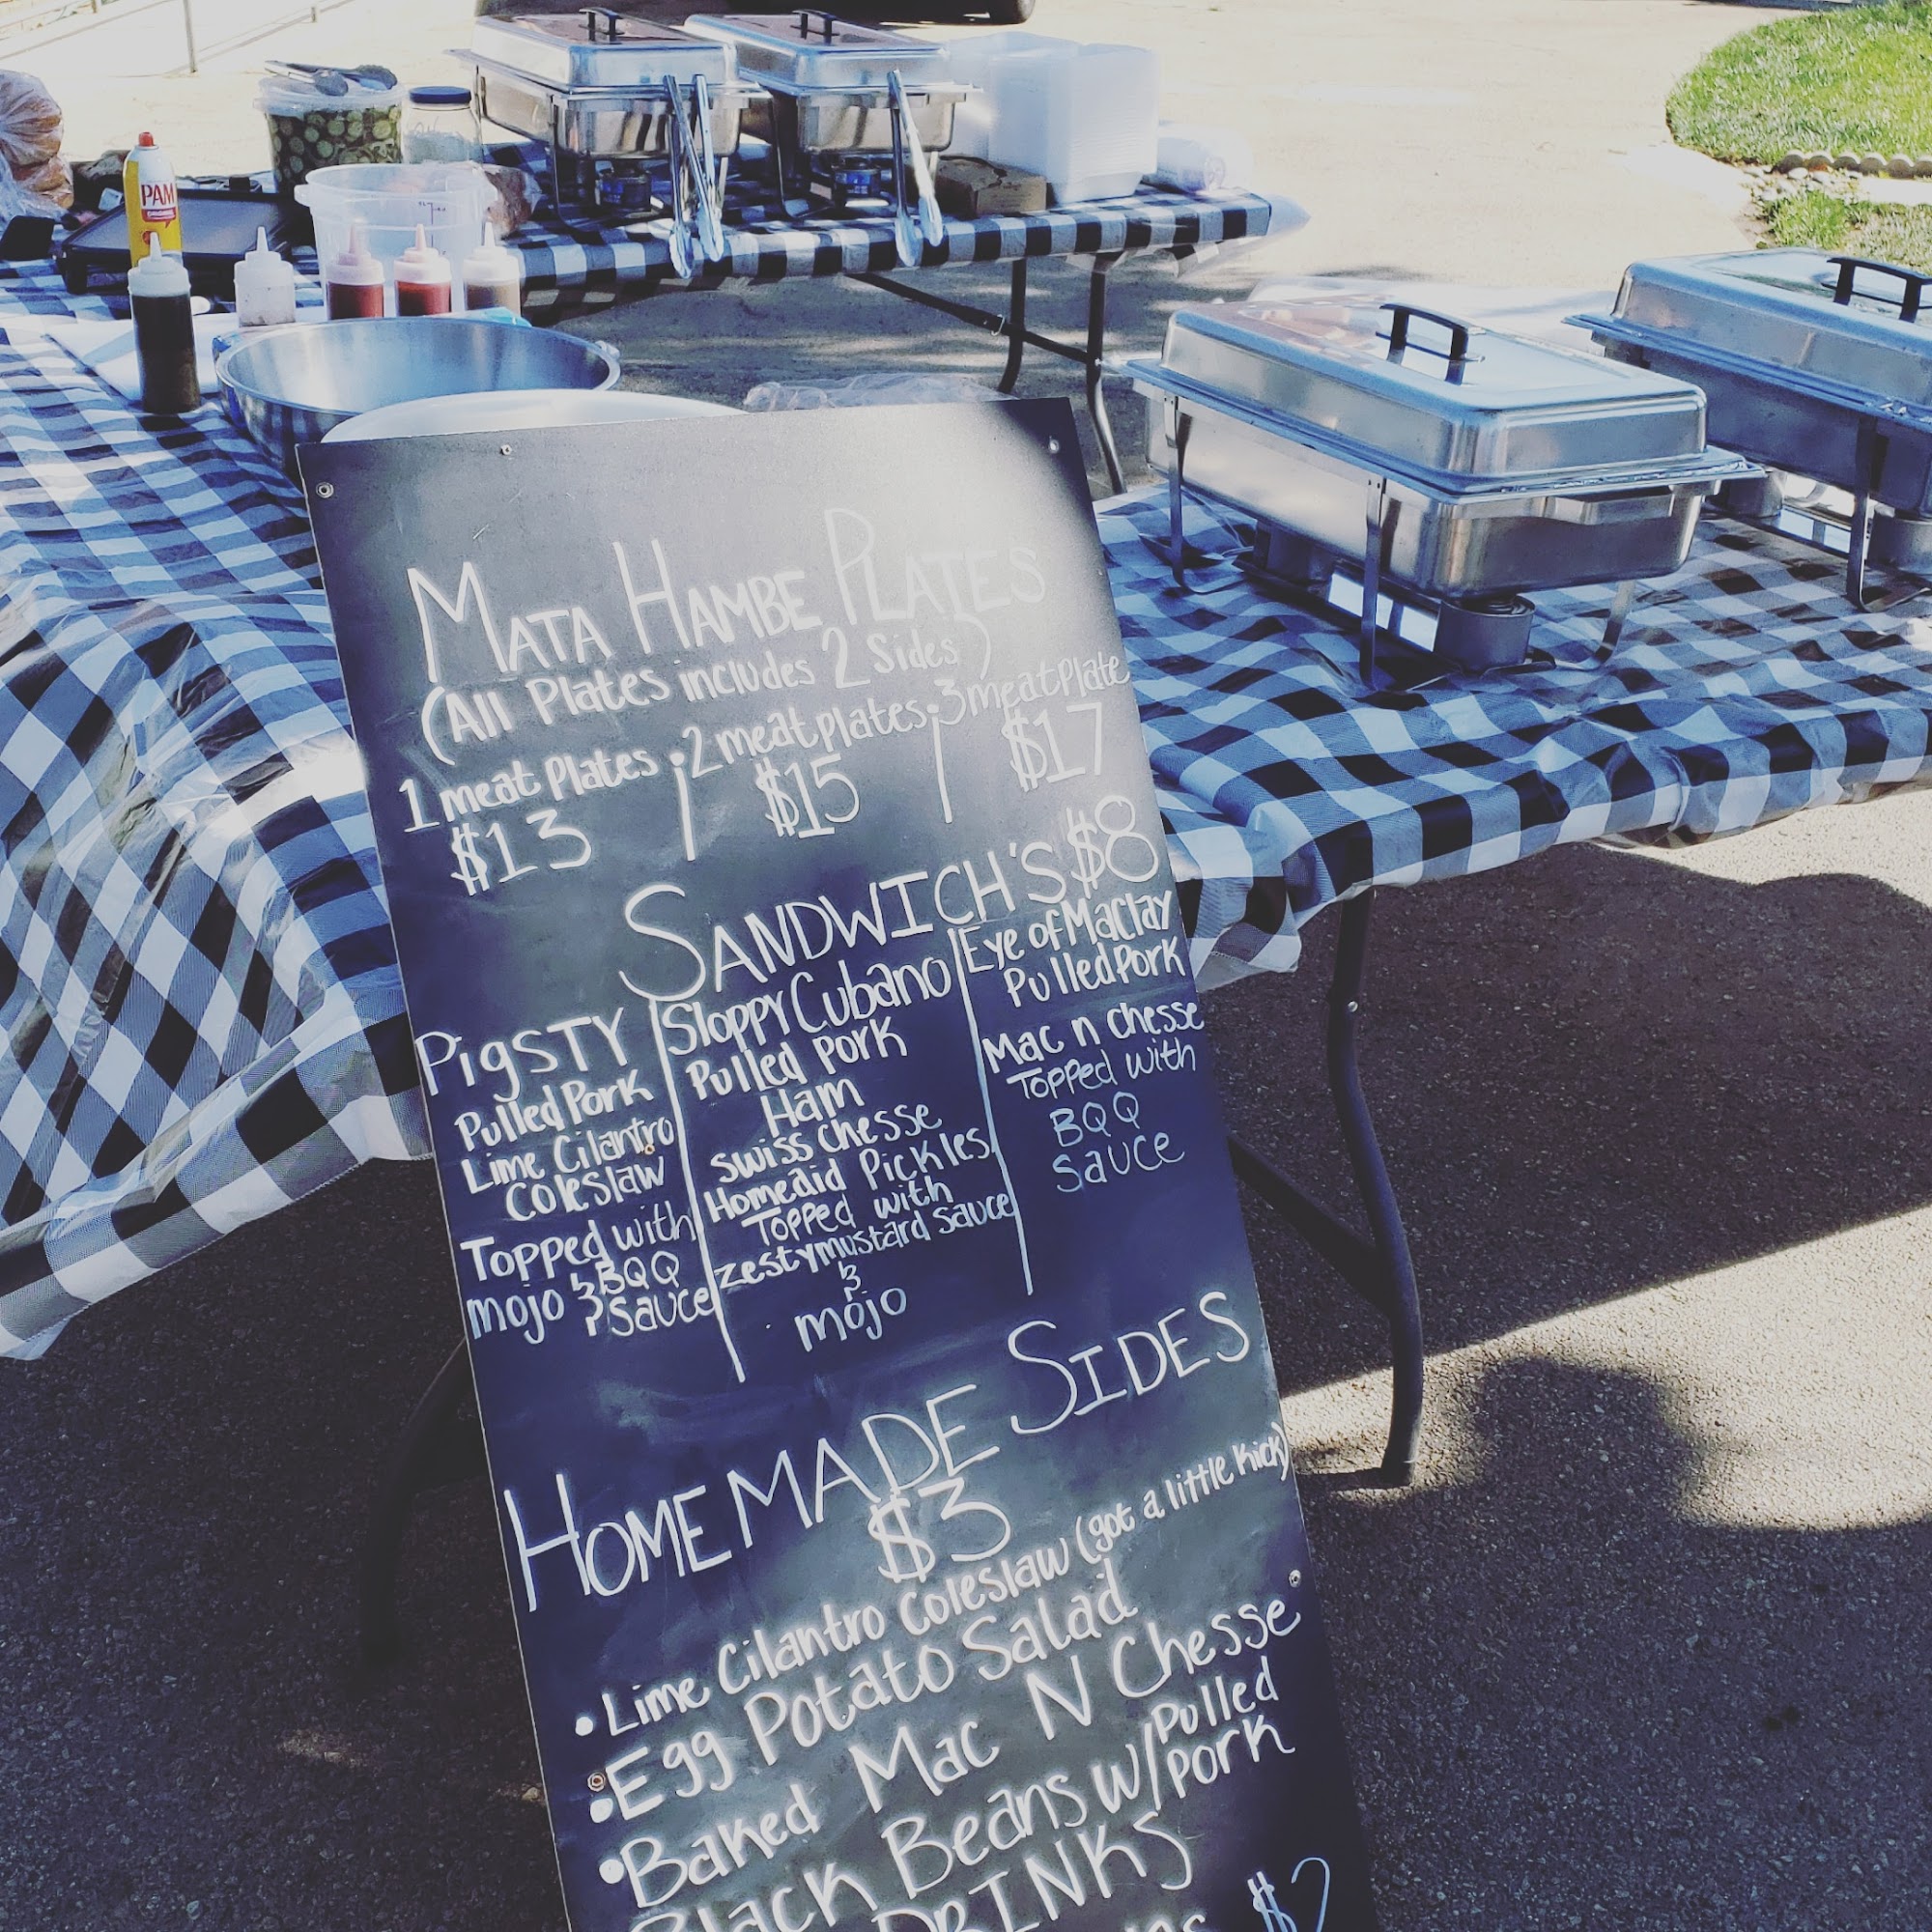 PAM
MATA HAMBE PLATES
(All Plates includes 2 Sides)
1 meat plates • 2 meat plates • 3 meat plate
$13 | $15 | $17
SANDWICH'S $8
PigSTY
Pulled Pork
Lime Cilantro
Coleslaw
Topped with
mojo & BQQ
Sauce
Sloppy Cubano
Pulled pork
Ham
swiss chesse
Homeaid Pickles
Topped with
zesty mustard sauce
&
mojo
Eye of Maclay
Pulled Pork
Mac n chesse
Topped with
BQQ
Sauce
HOMEMADE SIDES
$3
• Lime Cilantro Coleslaw (got a little kick)
• Egg Potato Salad
• Baked Mac N Chesse
Black Beans w/ Pulled Pork
DRINKS
$2